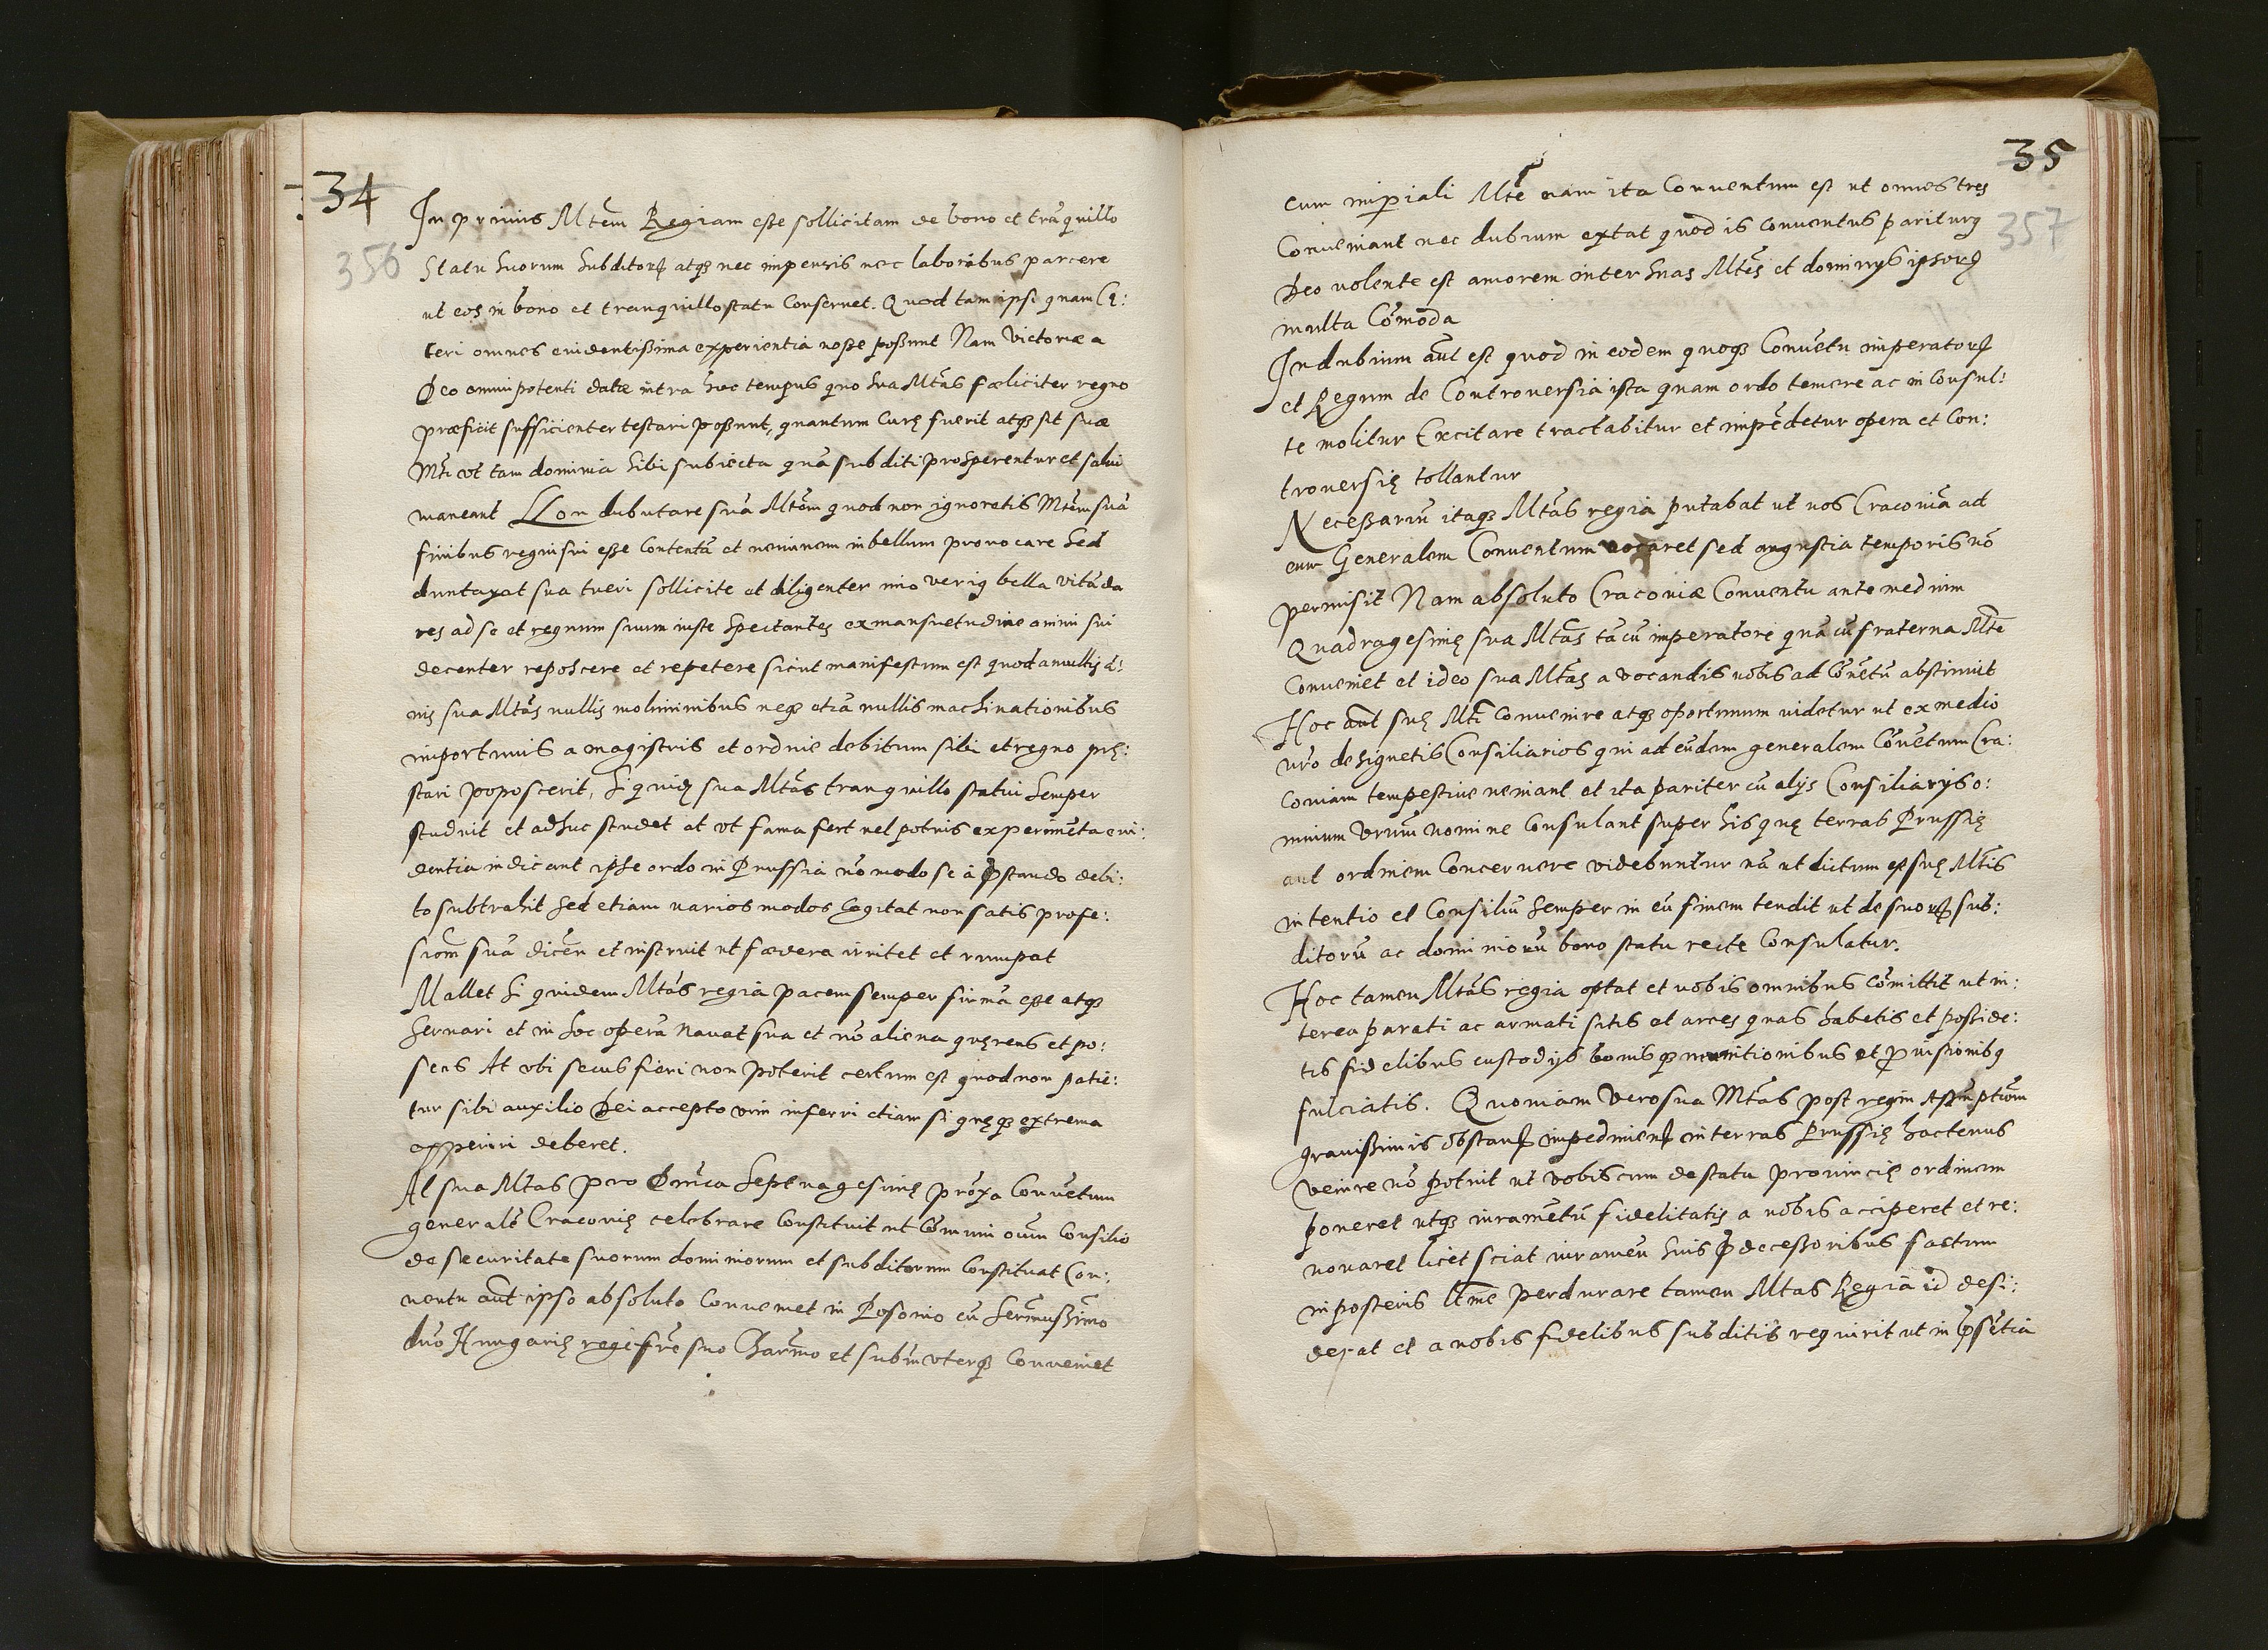 34
356
In primis Mtēm Regiam eſse ſollicitam de bono et trāquillo
Statu suorum subditorꝝ atqꝫ nec impensis nec laboribus parcere
ut eos in bono et tranquillo statu Conseruet. Quod tam ipsi quam Ce:
teri omnes euidentißima experientia noße poßunt Nam victoriæ a
Deo omnipotenti datæ intra hoc tempus quo sua Mtās fæliciter regno
præficit sufficienter testari poßunt, quantum Curę fuerit atqꝫ sit suæ
Mti vt tam dominia sibi subiecta quā subditi prosperentur et salui
maneant Non dubutare suā Mtēm quod non ignoretis Mtēm suā
finibus regni sui eße Contentā et neminem in bellum prouocare sed
duntaxat sua tueri sollicite et diligenter imo verius bella vitāda
res ad se et regnum suum iuste spectantes ex mansuetudine animi sui
decenter reposcere et repetere sicut manifestum est quod a multis ā:
nis sua Mtās nullis moliminibus neqꝫ etiā nullis machinationibus
importunis a magistris et ordine debitum sibi et regno prę:
stari poposcerit, Siquidem sua Mtās tranquillo statui semper
studuit et adhuc studet at vt fama fert uel potius experimēta eui:
dentia indicant ipse ordo in Prussia nō modo se á p̄stando debi:
to subtrahit sed etiam varios modos Cogitat non satis profe:
siom̄ suā dicēn et instruit ut fædera irritet et rumpat
Mallet siquidem Mtās regia pacem semper firmā eße atqꝫ
seruari et in hoc operā nauat sua et nō aliena quęrens et po:
sens At vbi secus fieri non poterit certum est quod non patie:
tur sibi auxilio Dei accepto vim inferri etiam si quęqꝫ extrema
experiri deberet.
At sua Mtas pro Dnīca Septuagesimę prōxa Conuētum
generalē Cracouię celebrare Constituit ut Cōmuni ouīn Consilio
de securitate suorum dominiorum et subditorum Constituat Con:
uentu aūt ipso absoluto Conueniet in Posonio cū Serīnißimo
dnō Hungarię rege frē suo Charīmo et subīn vterqꝫ Conueniet
35
357
cum imperiali Mtē nam ita Conuentum est ut omnes tres
Conueniant nec dubium extat quod is conuentus pariturꝯ
Deo uolente est amorem inter suas Mtēs et dominijs ipsorꝝ
multa Cōmoda
Indubium aūt est quod in eodem quoqꝫ Conuētu imperatorꝝ
et Regum de Controuersia ista quam ordo temere ac inConsul:
te molitur Excitare tractabitur et impēdetur opera et Con:
trouersię tollantur
Neceßariū itaqꝫ Mtās regia putabat ut uos Cracouiā ad
eum Generalem Conuentum vocaret sed angustia temporis nō
permisit Nam absoluto Cracouiæ Conuentu ante medium
Quadragesimę sua Mtās tā cū imperatore quā cū fraterna Mtē
Conueniet et ideo sua Mtās a vocandis uobis ad Cōuētū abstinuit
Hoc aūt suę Mti Conuenire atqꝫ oportunum uidetur ut ex medio
uro designetis Consiliarios qui ad eūdem generalem Cōuētum Cra:
couiam tempestiue ueniant et ita pariter cū alijs Consiliarijs o:
mnium vrūm nomine Consulant super his quę terras Prussię
aut ordinem Concernere videbuntur nā ut dictum est suę Mtis
intentio et Consiliū semper in eū finem tendit ut de suorꝝ sub:
ditorū ac dominiorū bono statu recte Consulatur.
Hoc tamen Mtās regia optat et uobis omnibus Cōmittit ut in:
terea parati ac armati sitis et arces quas habetis et poßide:
tis fidelibus custodijs bonisqꝫ munitionibus et prouisionibꝯ
fulciatis. Quoniam Vero sua Mtās post regni Aßūptiom̄
grauißimis obstanꝭ impedimenꝭ in terras Prussię hactenus
venire nō potuit ut vobiscum de statu prouincię ordinem
poneret utqꝫ iuramētū fidelitatis a uobis acciperet et re:
nouaret licet sciat iuramen̄ suis p̄decessoribus factum
in posteris ltīme perdurare tamen Mtas Regia id desi:
derat et a uobis fidelibus subditis requirit ut in p̄sētia